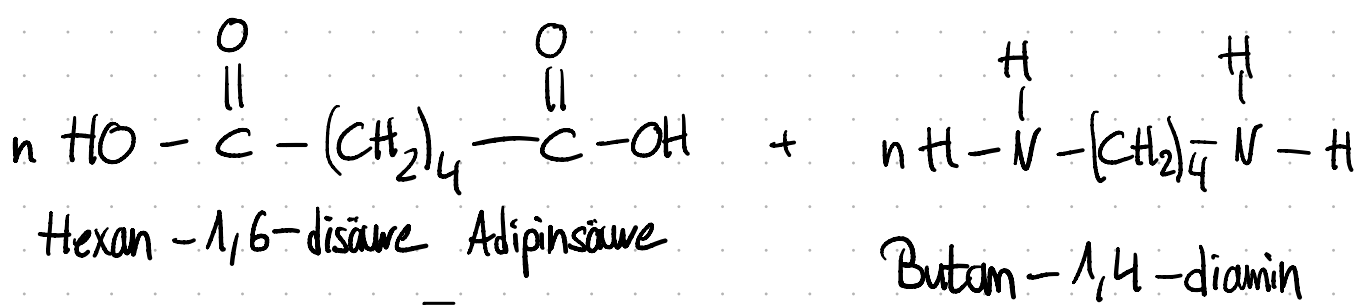 O O H H
|| || | |
n HO – C – (CH₂)₄ – C – OH + n H – N – (CH₂)₄ – N – H
Hexan – 1,6 – disäure Adipinsäure Butan – 1,4 – diamin